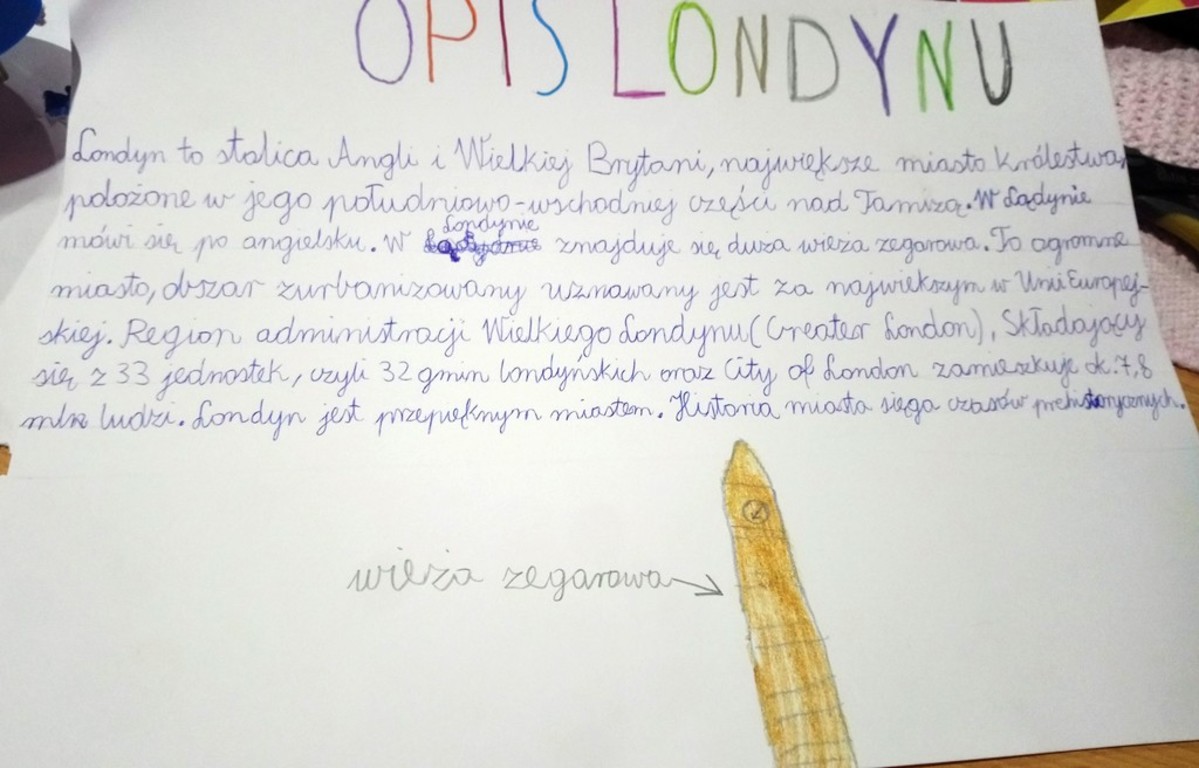 OPIS LONDYNU
Londyn to stolica Angli i Wielkiej Brytani, największe miasto Królestwa,
położone w jego południowo-wschodniej części nad Tamizą. W Lądynie
mówi się po angielsku. W Londynie znajduje się duża wieża zegarowa. To ogromne
miasto, obszar zurbanizowany uznawany jest za największym w Unii Europej-
skiej. Region administracji Wielkiego Londynu (Greater London), Składający
się z 33 jednostek, czyli 32 gmin londyńskich oraz City of London zamieszkuje ok. 7,8
mln ludzi. Londyn jest przepięknym miastem. Historia miasta sięga czasów prehistorycznych.
wieża zegarowa